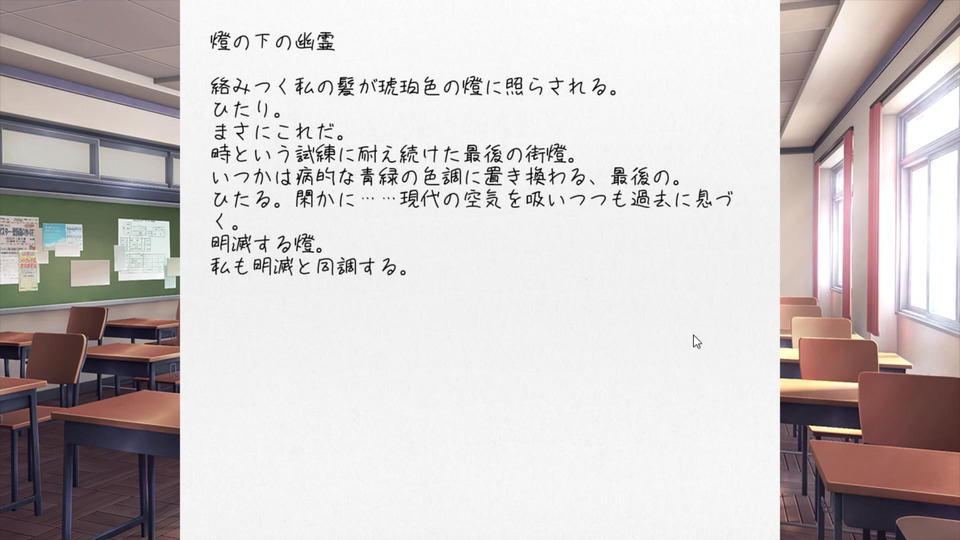 燈の下の幽霊
絡みつく私の髪が琥珀色の燈に照らされる。
ひたり。
まさにこれだ。
時という試練に耐え続けた最後の街燈。
いつかは病的な青緑の色調に置き換わる、最後の。
ひたる。閑かに……現代の空気を吸いつつも過去に息づ
く。
明滅する燈。
私も明滅と同調する。